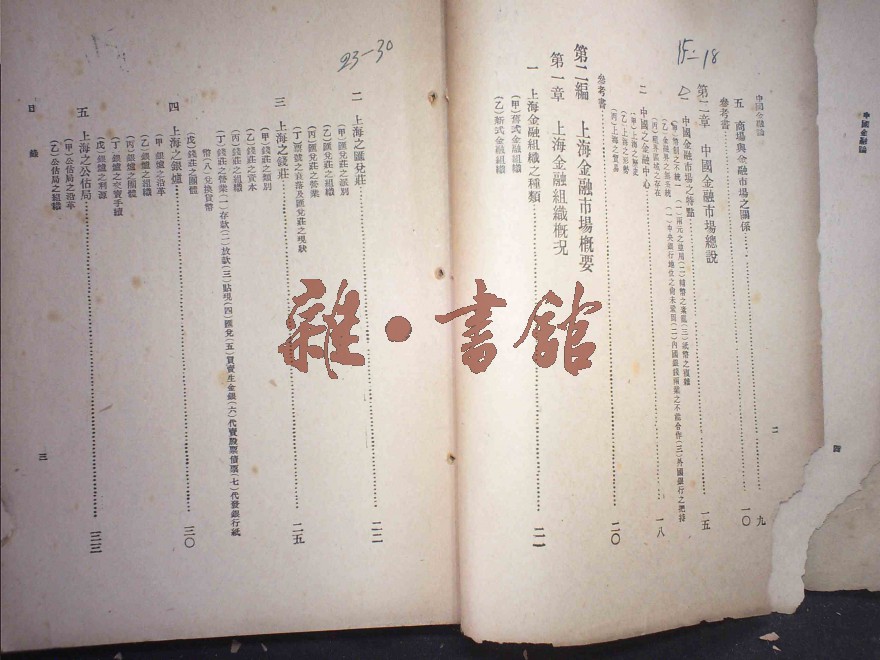 中國金融論
四
中國金融論
二
五 商場與金融市場之關係 九
參考書 一〇
第二章 中國金融市場總說
一 中國金融市場之特點 一五
(一)兩元之並用(二)輔幣之紊亂(三)紙幣之複雜
(乙)金融界之無系統 (一)中央銀行地位之尚未鞏固(二)內國銀錢兩業之不能合作(三)外國銀行之把持
(丙)租界區域之存在
二 中國之金融中心 一八
(甲)上海之歷史
(乙)上海之形勢
(丙)上海之貿易
參考書 二〇
第二編 上海金融市場概要
第一章 上海金融組織概況
一 上海金融組織之種類 二一
(甲)舊式金融組織
(乙)新式金融組織
15-18
23-30
二 上海之匯兌莊 二二
(甲)匯兌莊之派別
(乙)匯兌莊之組織
(丙)匯兌莊之營業
(丁)票號之衰落及匯兌莊之現狀
三 上海之錢莊 二五
(甲)錢莊之類別
(乙)錢莊之資本
(丙)錢莊之組織
(丁)錢莊之營業 (一)存款(二)放款(三)貼現(四)匯兌(五)買賣生金銀(六)代賣股票債票(七)代發銀行紙
幣(八)兌換貨幣
(戊)錢莊之團體
四 上海之銀爐 三〇
(甲)銀爐之沿革
(乙)銀爐之組織
(丙)銀爐之團體
(丁)銀爐之交寶手續
(戊)銀爐之利源
五 上海之公估局 三三
(甲)公估局之沿革
(乙)公估局之組織
目錄
三
雜·書館